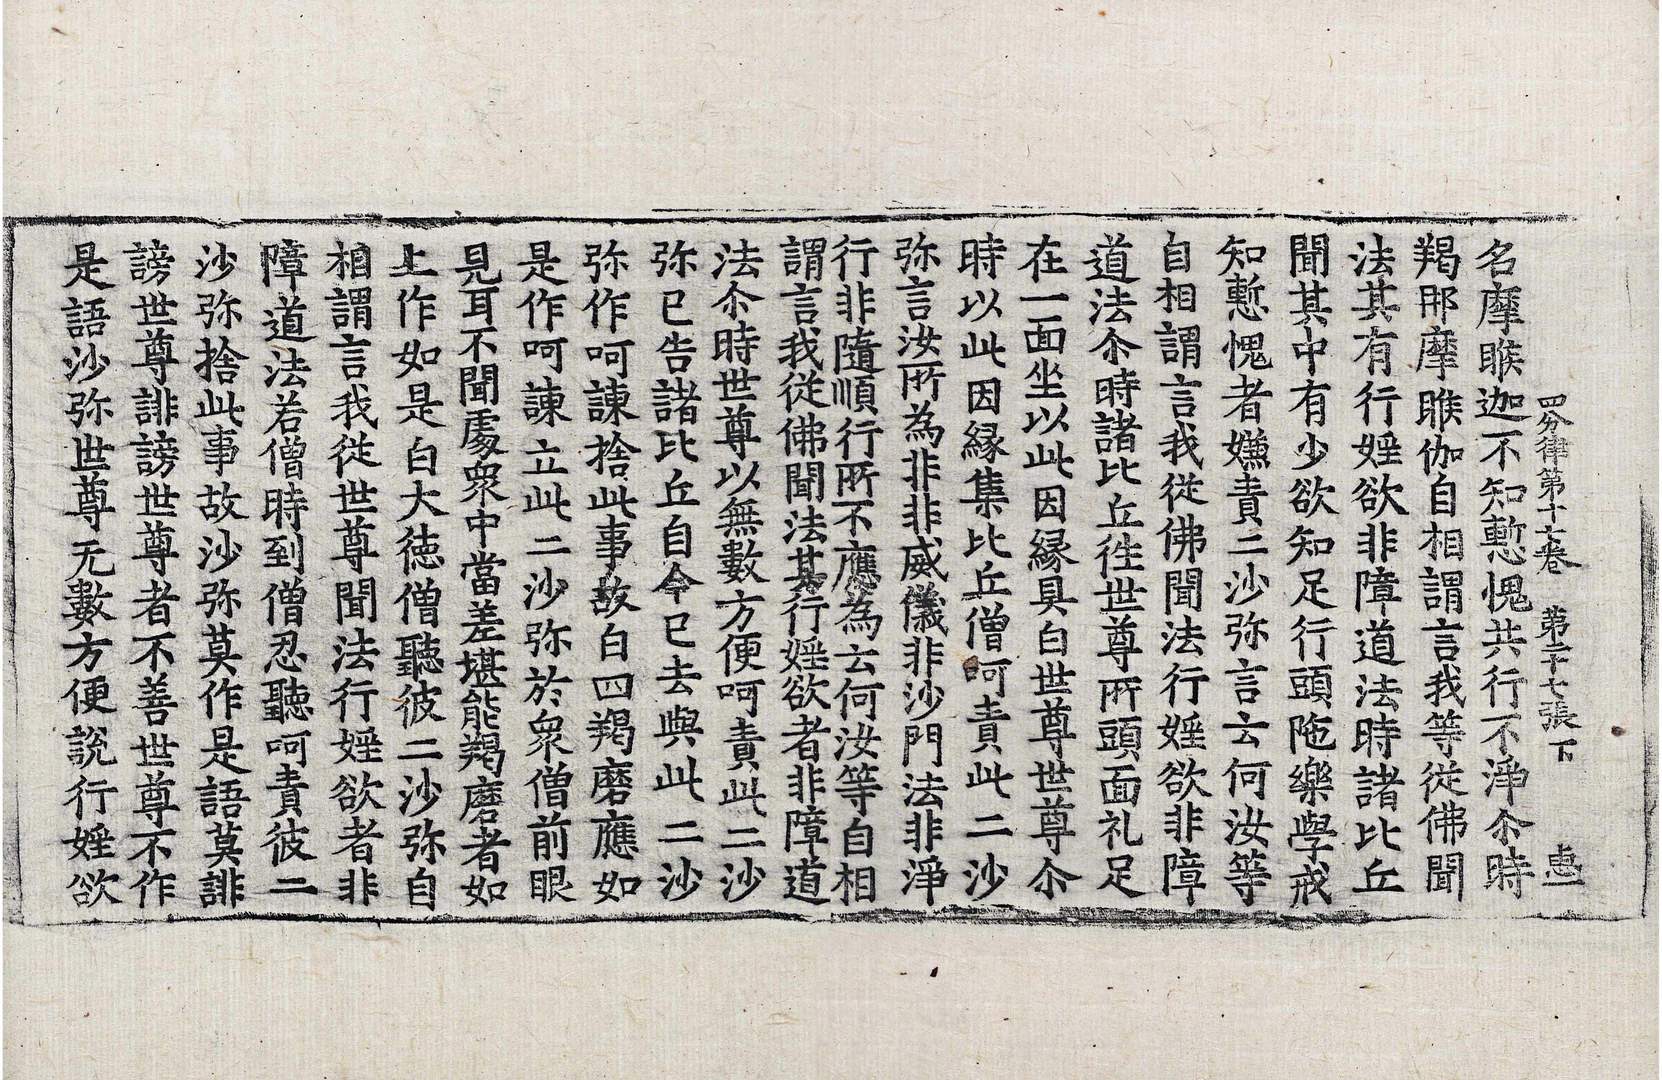 四分律第十七卷 第二十七張 下 恵
名摩睺迦不知慙愧共行不淨尒時
羯那摩睺伽自相謂言我等從佛聞
法其有行婬欲非障道法時諸比丘
聞其中有少欲知足行頭陁樂學戒
知慙愧者嫌責二沙弥言云何汝等
自相謂言我從佛聞法行婬欲非障
道法尒時諸比丘徃世尊所頭面礼足
在一面坐以此因緣具白世尊世尊尒
時以此因緣集比丘僧呵責此二沙
弥言汝所為非非威儀非沙門法非淨
行非隨順行所不應為云何汝等自相
謂言我從佛聞法其行婬欲者非障道
法尒時世尊以無數方便呵責此二沙
弥已告諸比丘自今已去與此二沙
弥作呵諫捨此事故白四羯磨應如
是作呵諫立此二沙弥於衆僧前眼
見耳不聞處衆中當差堪能羯磨者如
上作如是白大徳僧聽彼二沙弥自
相謂言我從世尊聞法行婬欲者非
障道法若僧時到僧忍聽呵責彼二
沙弥捨此事故沙弥莫作是語莫誹
謗世尊誹謗世尊者不善世尊不作
是語沙弥世尊无數方便說行婬欲